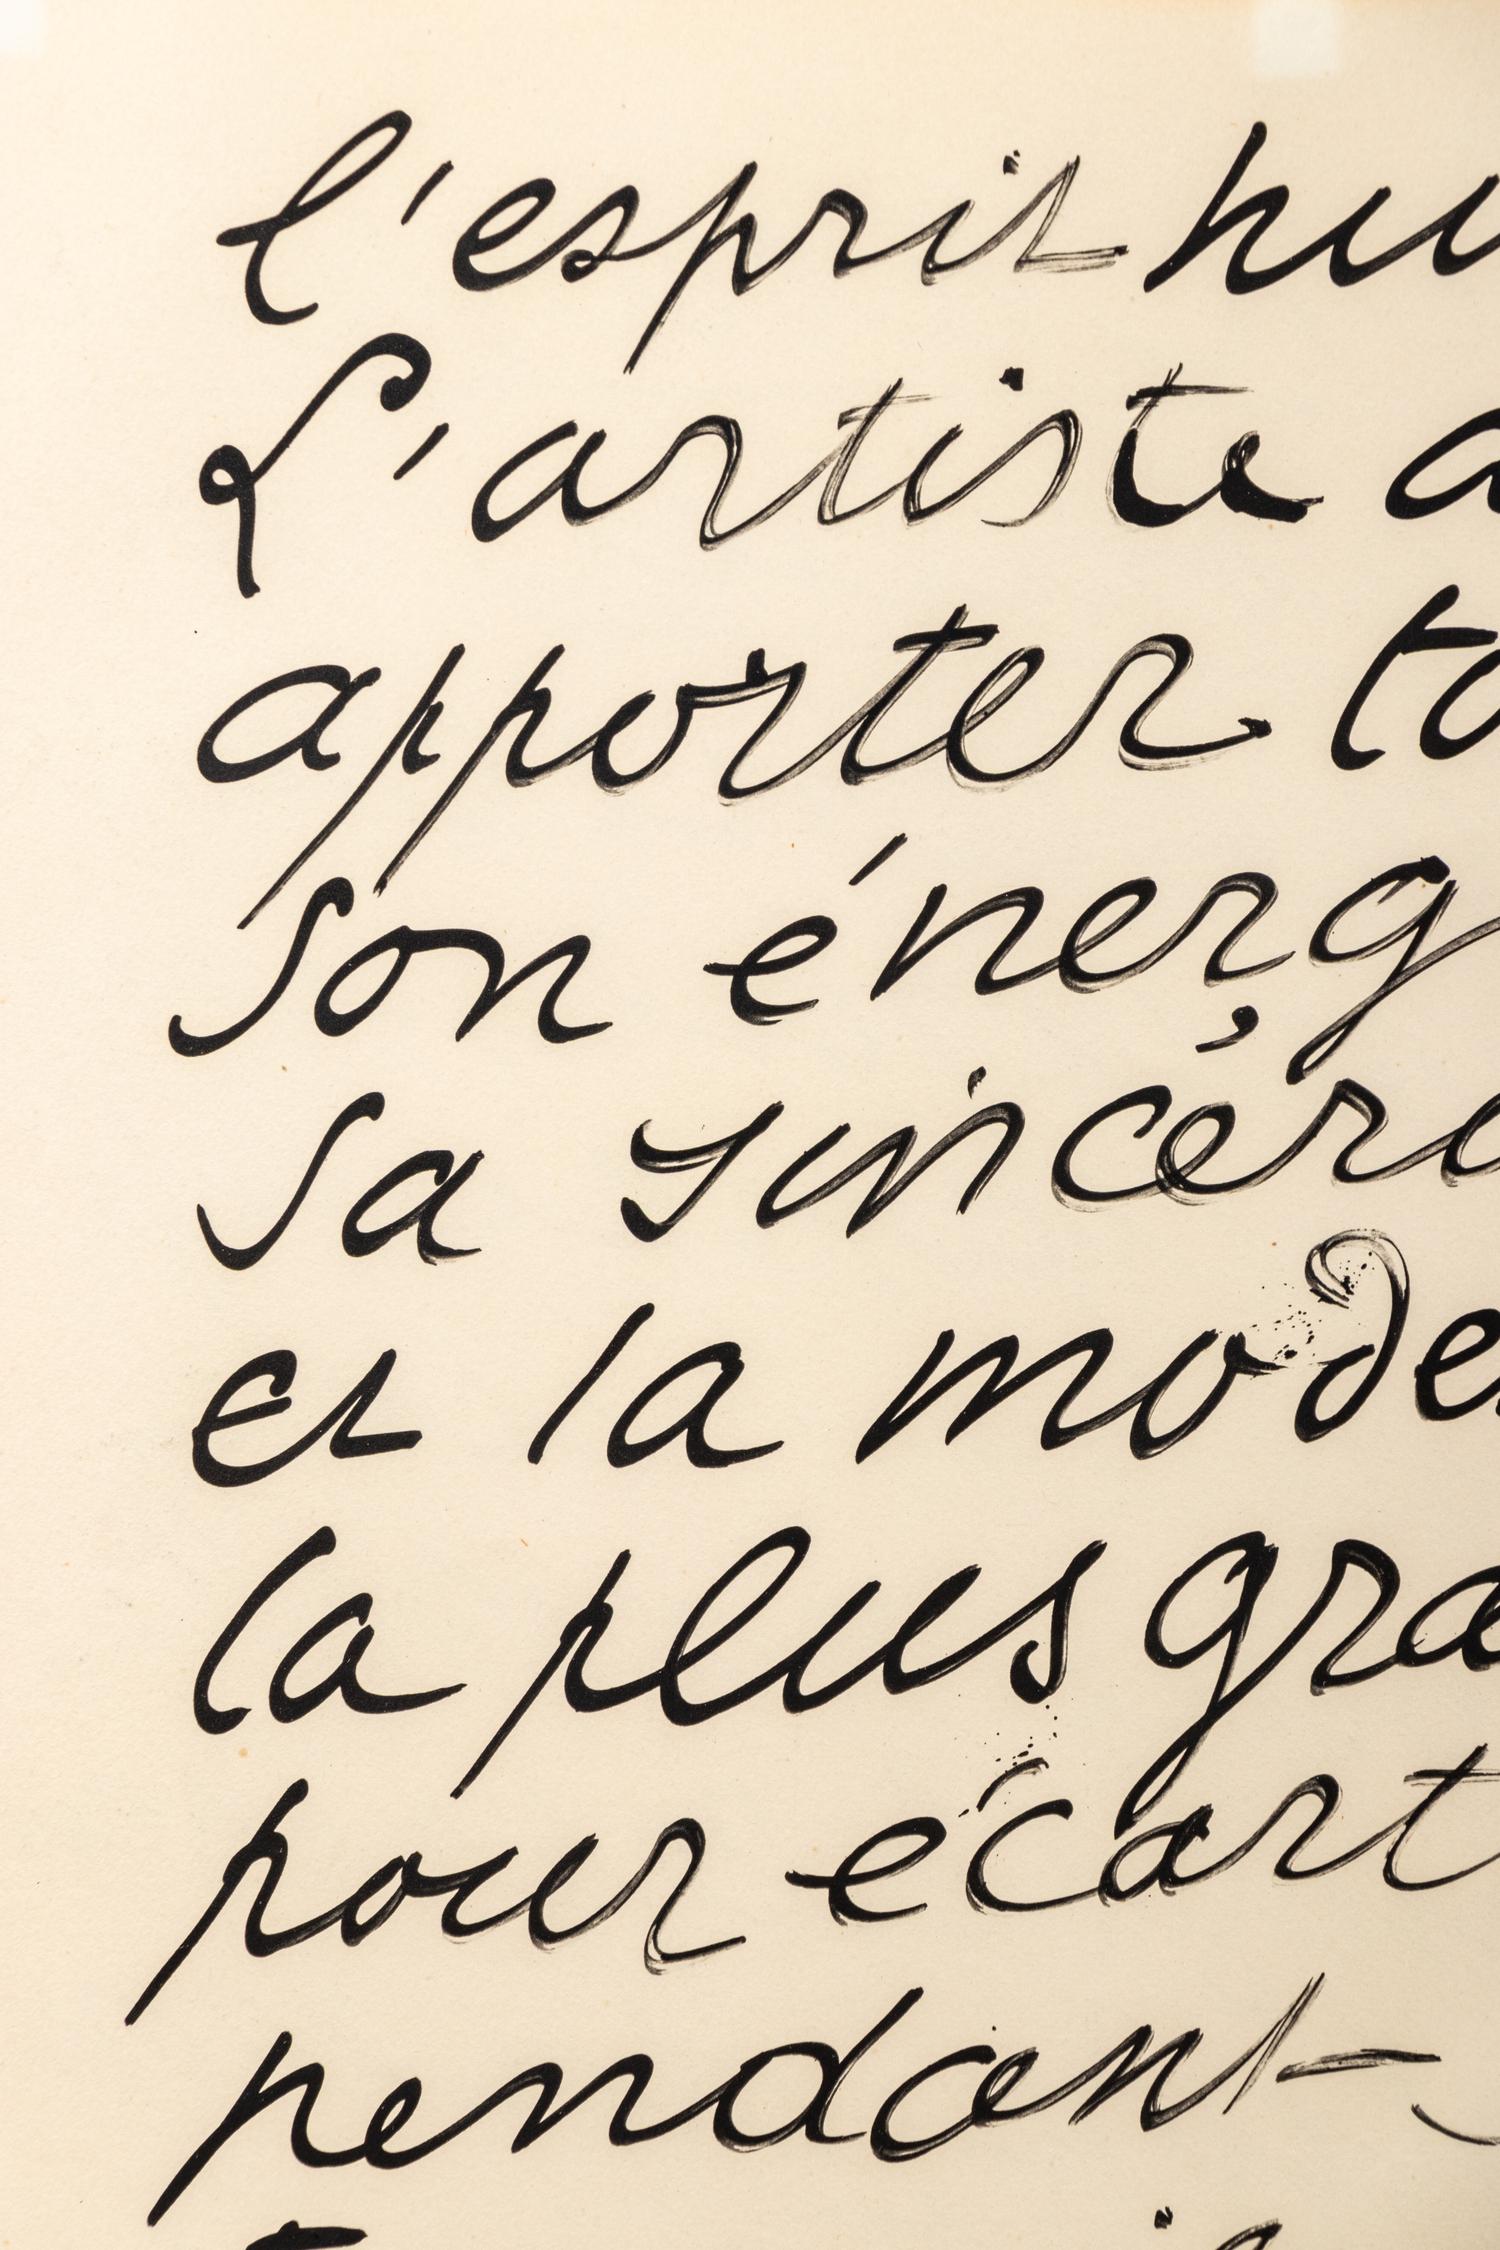 l'esprit hu
L'artiste a
apporter to
son énerg
sa sincér
et la mode
la plus gra
pour écart
pendant